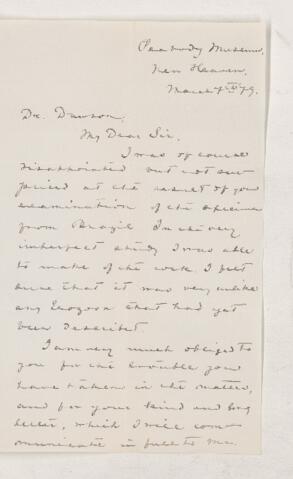 Peabody Museum,
New Heaven,
March 7th 79.
Dr. Dawson,
My Dear Sir,
I was of course
disappointed but not sur
prised at the result of your
examination of the specimen
from Brazil In the very
imperfect study I was able
to make of the work I felt
sure that it was very unlike
any Eozoon that had yet
been described.
I am very much obliged to
you for the trouble you
have taken in the matter,
and for your kind and long
letter, which I will com-
municate in full to Mr.